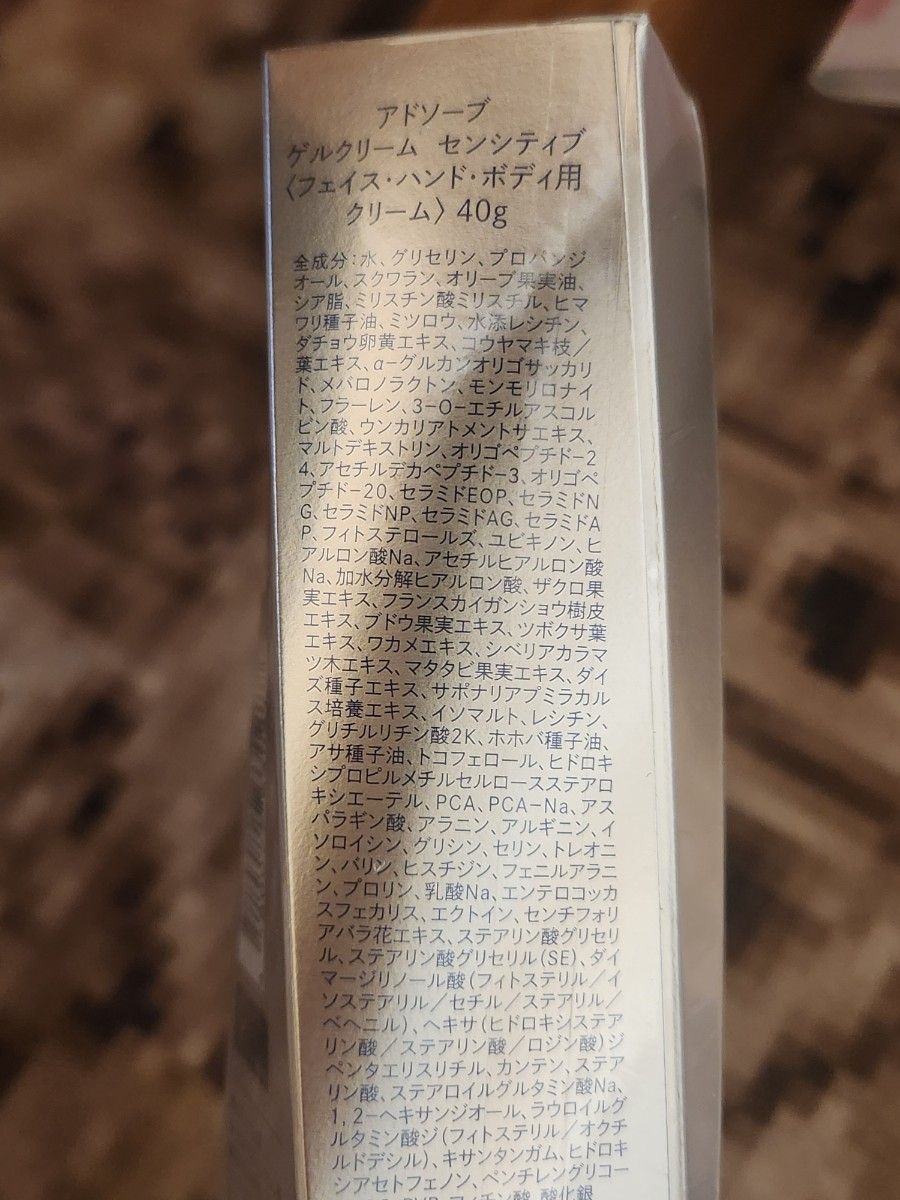 アドソーブ
ゲルクリーム センシティブ
〈フェイス・ハンド・ボディ用
クリーム〉 40g
全成分：水、グリセリン、プロパンジ
オール、スクワラン、オリーブ果実油、
シア脂、ミリスチン酸ミリスチル、ヒマ
ワリ種子油、ミツロウ、水添レシチン、
ダチョウ卵黄エキス、コウヤマキ枝／
葉エキス、α-グルカンオリゴサッカリ
ド、メバロノラクトン、モンモリロナイ
ト、フラーレン、3-O-エチルアスコル
ビン酸、ウンカリアトメントサエキス、
マルトデキストリン、オリゴペプチド-2
4、アセチルデカペプチド-3、オリゴペ
プチド-20、セラミドEOP、セラミドN
G、セラミドNP、セラミドAG、セラミドA
P、フィトステロールズ、ユビキノン、ヒ
アルロン酸Na、アセチルヒアルロン酸
Na、加水分解ヒアルロン酸、ザクロ果
実エキス、フランスカイガンショウ樹皮
エキス、ブドウ果実エキス、ツボクサ葉
エキス、ワカメエキス、シベリアカラマ
ツ木エキス、マタタビ果実エキス、ダイ
ズ種子エキス、サポナリアプミラカル
ス培養エキス、イソマルト、レシチン、
グリチルリチン酸2K、ホホバ種子油、
アサ種子油、トコフェロール、ヒドロキ
シプロピルメチルセルロースステアロ
キシエーテル、PCA、PCA-Na、アス
パラギン酸、アラニン、アルギニン、イ
ソロイシン、グリシン、セリン、トレオニ
ン、バリン、ヒスチジン、フェニルアラニ
ン、プロリン、乳酸Na、エンテロコッカ
スフェカリス、エクトイン、センチフォリ
アバラ花エキス、ステアリン酸グリセリ
ル、ステアリン酸グリセリル(SE)、ダイ
マージリノール酸(フィトステリル／イ
ソステアリル／セチル／ステアリル／
ベヘニル)、ヘキサ(ヒドロキシステア
リン酸／ステアリン酸／ロジン酸)ジ
ペンタエリスリチル、カンテン、ステア
リン酸、ステアロイルグルタミン酸Na、
1,2-ヘキサンジオール、ラウロイルグ
ルタミン酸ジ(フィトステリル／オクチ
ルドデシル)、キサンタンガム、ヒドロキ
シアセトフェノン、ペンチレングリコー
フィチン酸、酸化銀